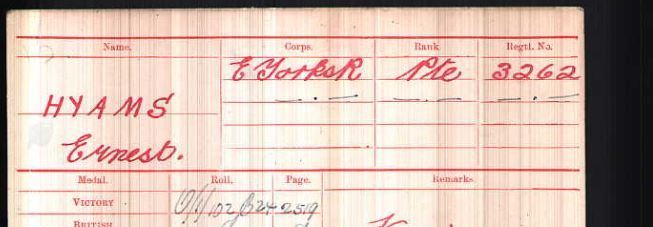 Name. Corps. Rank Regtl. No.
E Yorks R Pte 3262
HYAMS — . — — . — — . —
Ernest.
Medal. Roll. Page. Remarks
VICTORY O/1/102 B24 2519
BRITISH